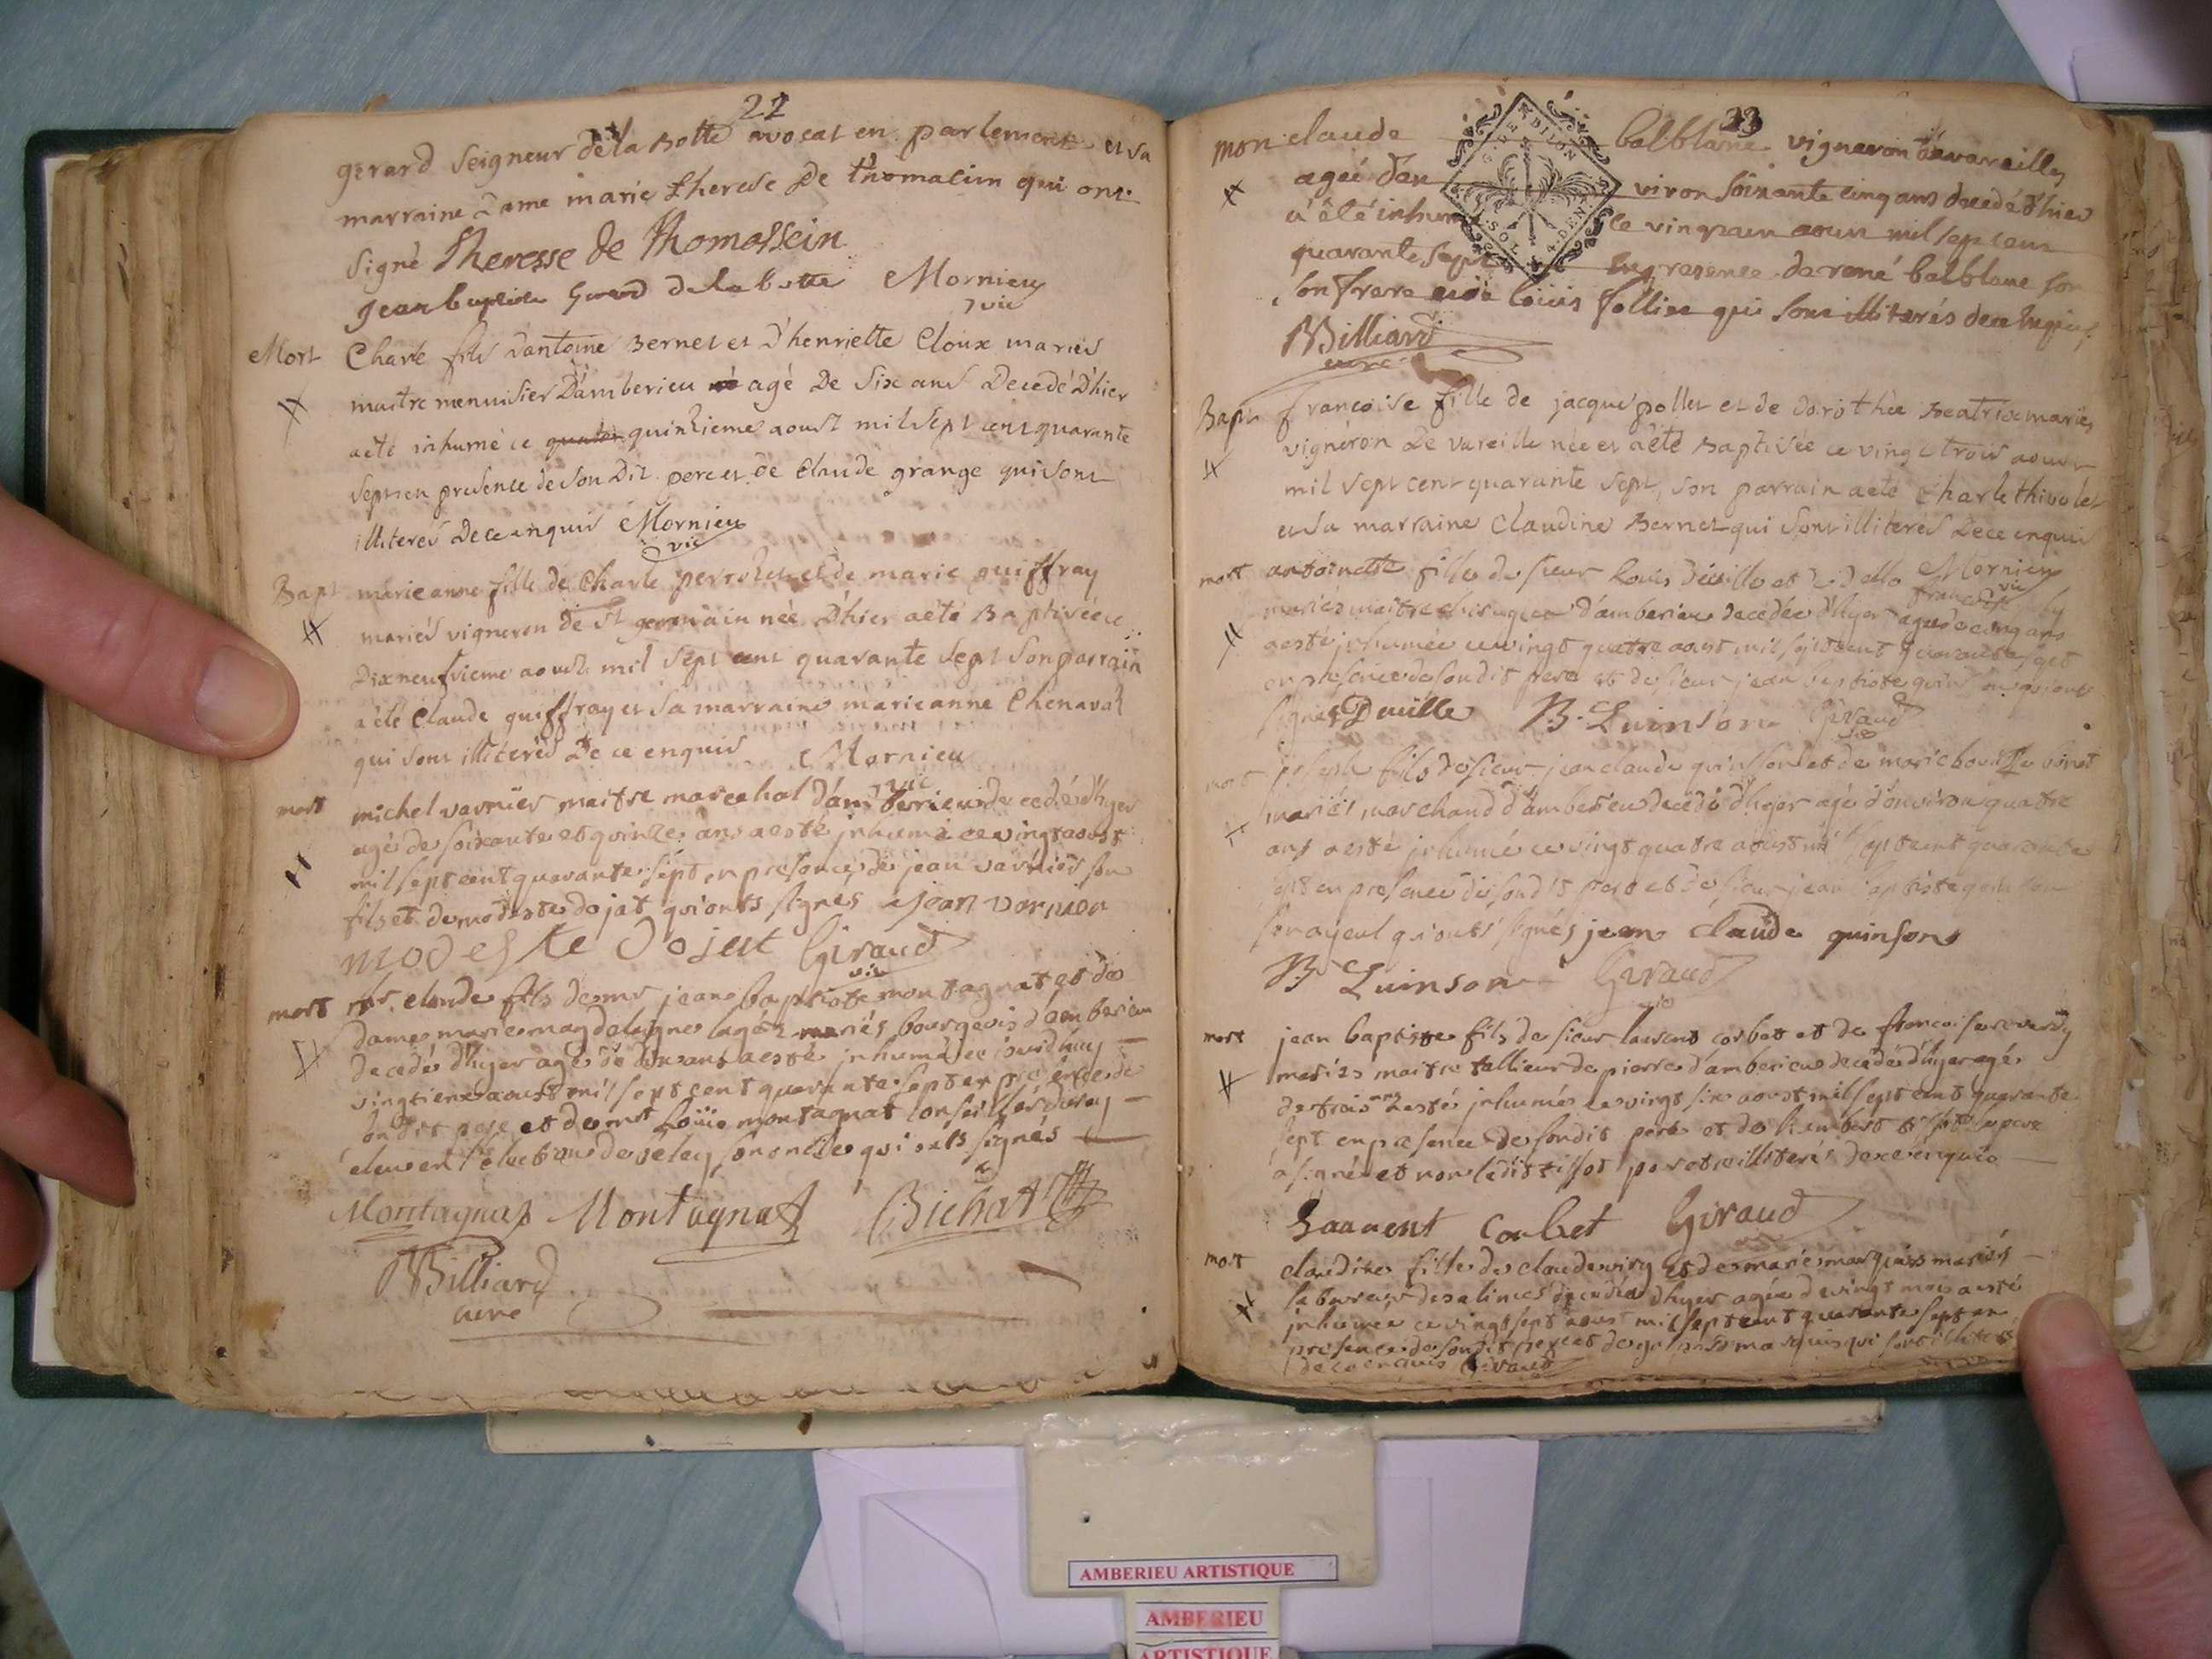 22
gerard seigneur de la Botte avocat en parlement et sa
marraine Dame marie therese De thomassin qui ont
signé Theresse de Thomassein
Jean baptiste Gerard de la botte Mornieu
vic
Mort Charle fils d'antoine Bernet et D'henriette Cloux mariés
maitre menuisier D'amberieu agé De six ans Decedé D'hier
a eté inhumé ce quinzieme aoust mil sept cent quarante
sept en presence de son Dit pere et de Claude grange qui sont
illiterés De ce enquis Mornieu
vic
Bapt marie anne fille de Charle perrozet et de marie guiffray
mariés vigneron de st germain née D'hier a eté Baptisée ce
Dixneufvieme aoust mil sept cent quarante sept son parrain
a eté Claude guiffray et sa marraine marie anne Chenaval
qui sont illiterés De ce enquis Mornieu
vic
mort michel varnier maitre marechal d'amberieu decedé d'hyer
agé de soixante et quinze ans a esté jnhumé ce vingt aoust
mil sept cent quarante sept en presence de jean varnier son
fils et de modeste dojat qui onts signés jean varnier
modeste Dojat Giraud
vic
mort mr. claude fils de mr jean baptiste montagnat et de
dame marie magdelaigne mariés bourgeois d'amberieu
decedé d'hyer agé de dix ans a esté jnhumé ce jourd'huy
vingtieme aoust mil sept cent quarante sept en presence de
son dit pere et de mr Loüis montagnat conseiller du roy
eleu en l'election de beley son oncle qui onts signés
Montagnat Montagnat Bichat
Billiard
curé
23
mort claude balblanc vigneron de vareilles
agé d'environ soixante cinq ans decedé d'hier
a été inhumé ce vingt aoust mil sept cent
quarante sept en presence de rené balblanc son
son frere et de loüis follier qui sont illiterés de ce enquis
Billiard
curé
Bapt francoise fille de jacque pollet et de dorothée Beatrix mariés
vigneron de vareille née et a eté Baptisée ce vingt trois aoust
mil sept cent quarante sept, son parrain a eté Charle thivolet
et sa marraine Claudine Bernet qui sont illiterés De ce enquis
Mornieu
vic
mort antoinette fille de sieur Louis Deüille et de dello francoise
mariés maitre chirurgien d'amberieu decedée d'hyer agée de cinq ans
a esté jnhumée ce vingt quatre aoust mil sept cent quarante sept
en presence de son dit pere et de sieur jean baptiste quinson qui onts
signés Deüille B. Quinson Giraud
vic
mort joseph fils de sieur jean claude quinson et de marie
mariés marchand d'amberieu decedé d'hyer agé d'environ quatre
ans a esté jnhumé ce vingt quatre aoust mil sept cent quarante
sept en presence de son dit pere et de sieur jean baptiste quinson
son ayeul qui onts signés jean claude quinson
B. Quinson Giraud
vic
mort jean baptiste fils de sieur laurent corbet et de francoise
mariés maitre tallieur de pierre d'amberieu decedé d'hyer agé
de trois ans a esté jnhumé ce vingt six aoust mil sept cent quarante
sept en presence de son dit pere et de humbert tissot le pere
a signé et non ledit tissot pour etre illiteré de ce enquis
Laurent Corbet Giraud
mort claudine fille de claude viry et de marie marquis mariés
laboureur des alimes decedée d'hyer agée de vingt mois a esté
jnhumée ce vingt sept aoust mil sept cent quarante sept en
presence de son dit pere et de marquis qui sont illiterés
de ce enquis Giraud
AMBERIEU ARTISTIQUE
AMBERIEU
ARTISTIQUE